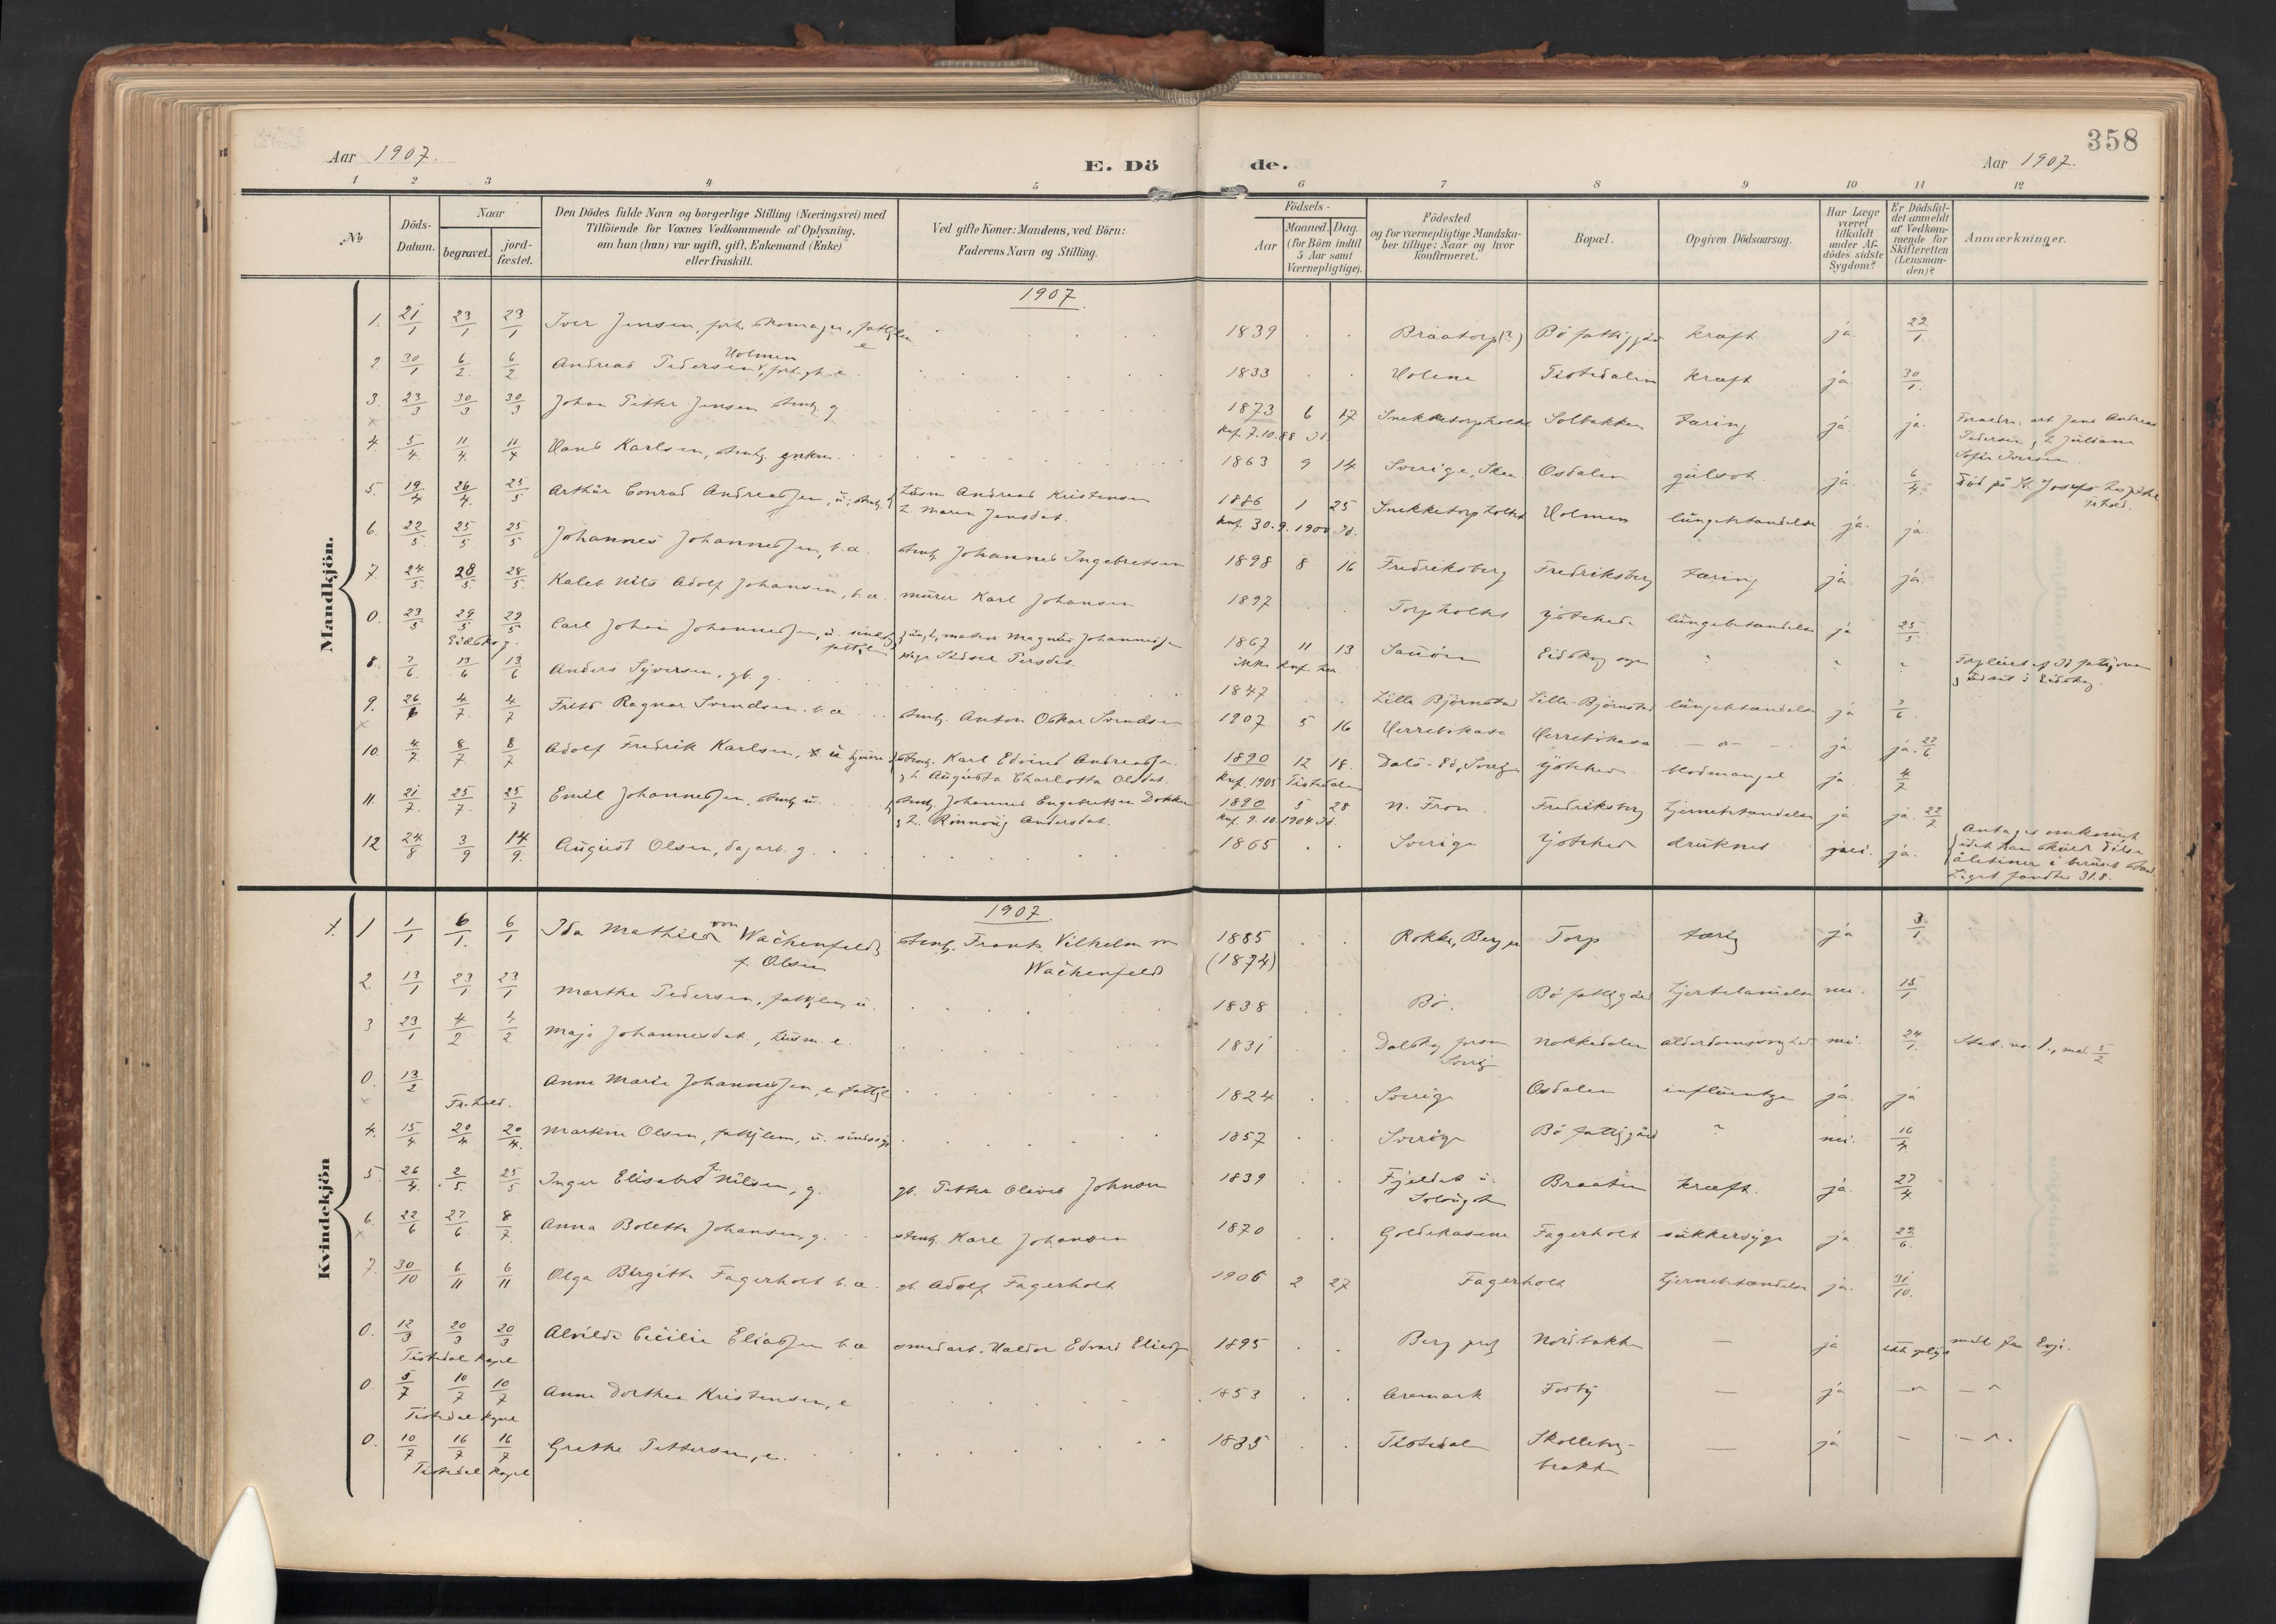 358
Aar 1907.
E. Dö
de.
Aar 1907.
1 2 3 4 5 6 7 8 9 10 11 12
No
Döds-Datum.
Naar
begravet.
jord-fæstet.
Den Dödes fulde Navn og borgerlige Stilling (Næringsvei) med
Tilföiende for Voxnes Vedkommende af Oplysning,
om han (hun) var ugift, gift, Enkemand (Enke)
eller fraskilt.
Ved gifte Koner: Mandens, ved Börn:
Faderens Navn og Stilling.
Födsels-
Aar
Maaned.
Dag.
(for Börn indtil
5 Aar samt
Værnepligtige).
Födested
og for værnepligtige Mandska-
ber tillige: Naar og hvor
konfirmeret.
Bopæl.
Opgiven Dödsaarsag.
Har Læge
været
tilkaldt
under Af-
dödes sidste
Sygdom?
Er Dödsfal-
det anmeldt
af Vedkom-
mende for
Skifteretten
(Lensman-
den)?
Anmærkninger.
Mandkjön.
1907
1. 21/1 23/1 23/1 Iver Jensen, forh. skomager, fattiglem e 1839 Braatorp(?) Bö fattiggård kræft ja. 22/1.
2 30/1 6/2 6/2 Andreas Pedersen Holmen, e. 1833 Holene Tistedalen kræft ja 30/1.
3. 23/3 30/3 30/3 Johan Petter Jensen arb. g 1873 6 17 Snekketorpholtet Solbakken tæring ja. ja. Foræedre: arb Jens Andreas
Knf. 7.10.88 Id. Pedersen & h Juliane
Sofie Iversen.
4. 5/4 11/4. 11/4 Hans Karlsen, arb. enkem. 1863 9 14 Sverige, Osdalen gulsot. ja. 6/4 Död på St. Josefs hospital
Fr.hald.
5. 19/4 26/4. 25/5 Arthur Conrad Andreassen, u; arb. Husm Andreas Kristensen 1886 1 25 Snekketorpholtet Holmen lungebetændelse ja. ja
h. Maren Jensdat. Knf. 30.9.1900 Id.
6. 22/5. 25/5 25/5 Johannes Johannessen, b.a. arb. Johannes Ingebretsen 1898 8 16 Fredriksberg Fredriksberg tæring ja. ja.
7. 24/5. 28/5. 28/5. Kaleb Nils Adolf Johansen, b.a. murer Karl Johansen 1897 Torpholtet lungebetændelse ja 25/5.
0. 23/5 29/5 29/5 Carl Johan Johannessen, u. sindss. ungk, matros Magnus Johannessen 1867 11 13 Eidskog
Eidskog. fattigl. pige Sidsel Persdat. ikke knf. her
8. 7/6. 13/6 13/6 Anders Syversen, gb. g. 1847 Lille Björnstad Lille-Björnstad lungebetændelse ja 7/6.
9. 26/6 4/7. 4/7 Frits Ragnar Svendsen. b.a arb. Anton Oskar Svendsen 1907 5 16 Herrebökasa Herrebökasa — ja. ja. 27/6
10. 4/7 8/7. 8/7 Adolf Fredrik Karlsen, u. arb. Karl Edvind Andreassen 1890 12 18. Dals-Ed, Sverige blodmangel ja 4/7
& h. Augusta Charlotta Olsdat. Knf. 1905 Tistedalen
11. 21/7. 25/7 25/7 Emil Johannessen, arb u. arb. Johannes Engebretsen Dokken 1890 5 28 N. Fron Fredriksberg hjernebetændelse ja ja. 22/7.
& h. Rönnaug Andersdat. Knf. 9.10.1904 Id.
12 24/8 3/9 14/9. August Olsen, dagarb. g. 1865 Sverige druknet nei. ja. Antages omkommet
Liget fandtes 31.8.
Kvindekjön
1907.
1 1/1 6/1. 6/1 Ida Mathilde von Wachenfeldt arb. Frants Vilhelm von 1885 Rokke, Berg Torp tæring ja 3/1
f. Olsen Wachenfeldt (1874)
2. 13/1 23/1 23/1 Marthe Pedersen, fattiglem, u. 1838 Bö. Bö fattiggård hjertelammelse nei. 15/1
3. 23/1 4/2 4/2 Maja Johannesdat., Husm. e. 1831 Dalskog Nokkedalen alderdomssvaghed nei. 24/1.
Sverig
0. 13/2 Anne Marie Johannessen, e. fattigl 1824 Sverige Osdalen influentza ja. ja
Fr.hald.
4. 15/4 20/4 20/4. Markine Olsen, fattiglem, u. sindssyg 1857 Sverige Bö fattiggård ? nei. 16/4.
5. 26/4. 2/5. 25/5 Inger Elisabet Nilsen, g. gb. Petter Olaves Johnsen 1839 Fjeldet u. Braaten kræft. ja. 27/4
6. 22/6 27/6 8/7. Anna Bolette Johansen, g. arb. Karl Johansen 1870 Goldekasene Fagerholt sukkersyge ja 22/6.
7. 30/10 6/11 6/11 Olga Birgitte Fagerholt b.a. gb Adolf Fagerholt 1906 2 27 Fagerholt hjernebetændelse ja. 31/10.
0. 12/3 20/3 20/3 Alvilde Cecilie Eliassen b.a Haldor Edvard Eliassen 1895 Berg Nordbakken — ja
Tistedal kapel
0 5/7 10/7 10/7 Anne Dorthea Kristensen, e 1853 Aremark Fosby — ja
Tistedal kapel
0. 10/7 16/7 16/7 Grethe Pettersen, e. 1835 Tistedal Skolleborg- — ja —
Tistedal kapel bakken